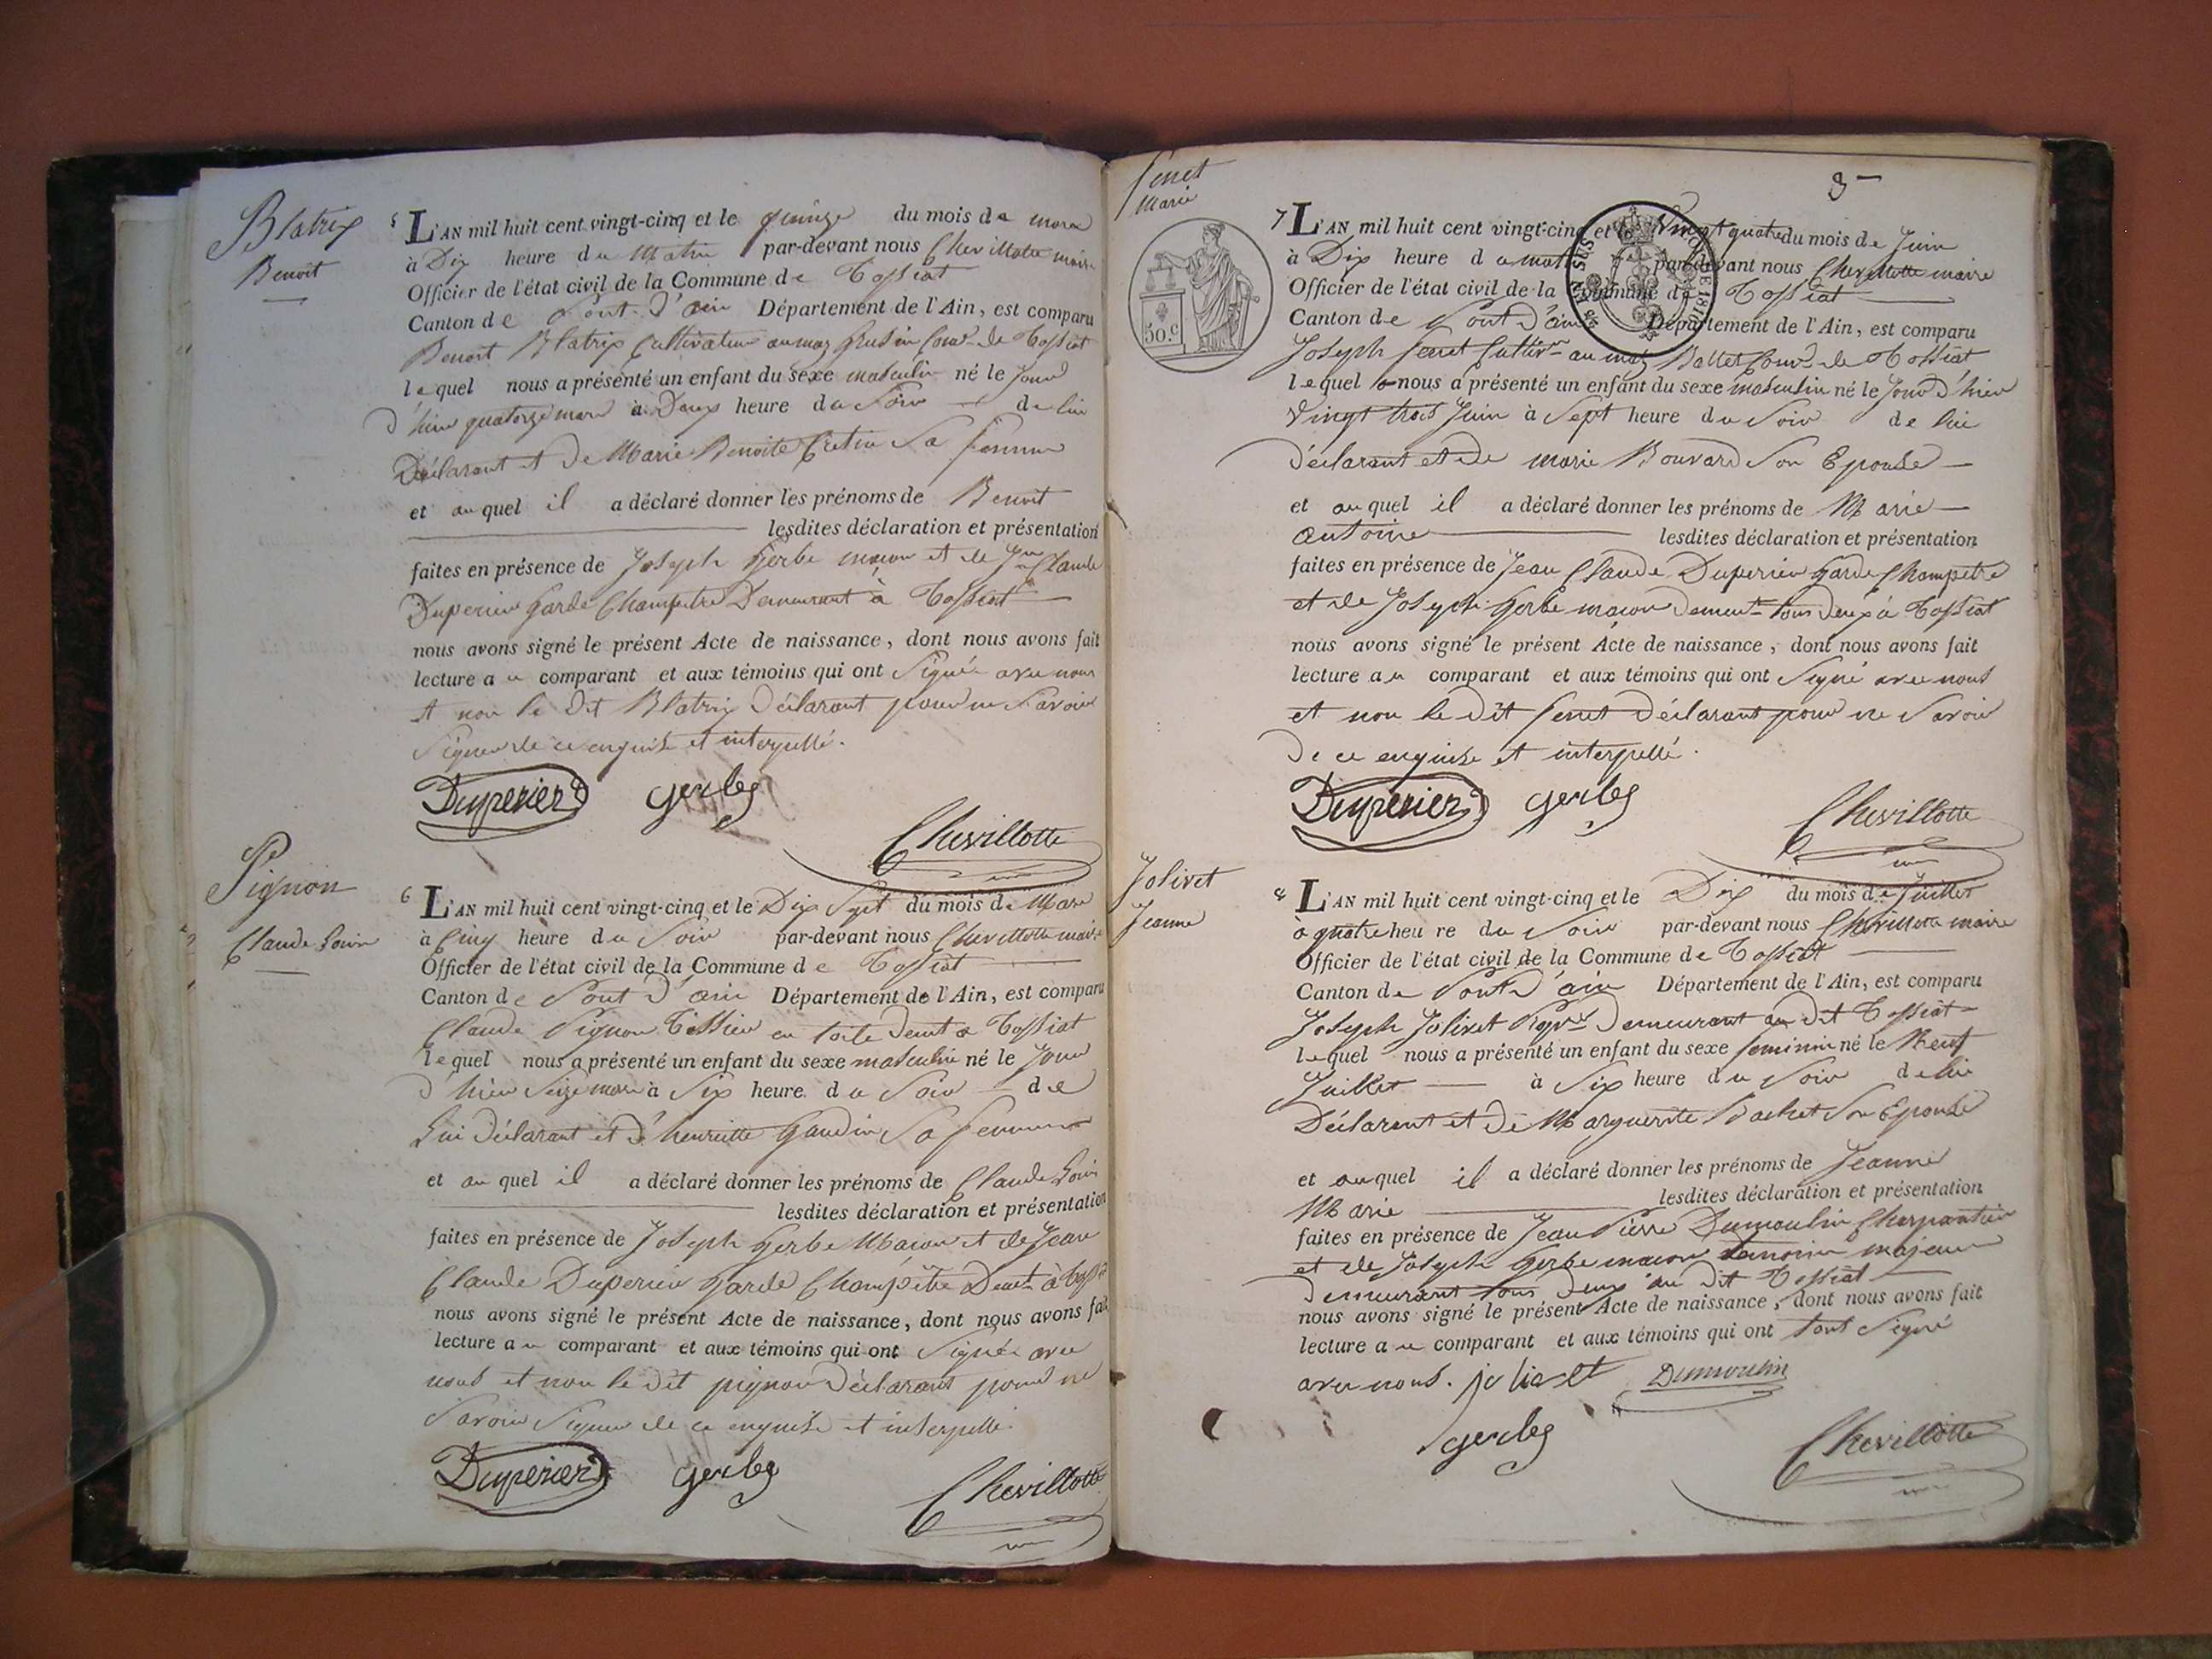 Blatrix
Benoit
5 L'AN mil huit cent vingt-cinq et le quinze du mois de mars
à Dix heure du Matin par-devant nous Chevillotte maire
Officier de l'état civil de la Commune de Tossiat
Canton de Pont d'ain Département de l'Ain, est comparu
Benoit Blatrix Cultivateur au maz Comᵉ de Tossiat
lequel nous a présenté un enfant du sexe masculin né le Jour
d'hier quatorze mars à Deux heure du Soir de lui
Déclarant et de Marie Benoite Cretin Sa femme
et auquel il a déclaré donner les prénoms de Benoit
lesdites déclaration et présentation
faites en présence de Joseph Gerbe macon et de Jⁿ Claude
Duperier Garde Champetre Demeurant à Tossiat
nous avons signé le présent Acte de naissance, dont nous avons fait
lecture au comparant et aux témoins qui ont Signé avec nous
et non le Dit Blatrix Déclarant pour ne Savoir
Signer de ce enquise et interpellé.
Duperier gerbe
Chevillotte
Pignon
Claude Louis
6 L'AN mil huit cent vingt-cinq et le Dix Sept du mois de Mars
à Cinq heure du Soir par-devant nous Chevillotte maire
Officier de l'état civil de la Commune de Tossiat
Canton de Pont d'ain Département de l'Ain, est comparu
Claude Pignon Tissier en toile demt a Tossiat
lequel nous a présenté un enfant du sexe masculin né le Jour
d'hier Seize mars à Six heure du Soir de
Lui Déclarant et d'henriette Gaudin Sa femme
et auquel il a déclaré donner les prénoms de Claude Louis
lesdites déclaration et présentation
faites en présence de Joseph Gerbe Macon et de Jean
Claude Duperier Garde Champêtre Demt à Tosst
nous avons signé le présent Acte de naissance, dont nous avons fait
lecture au comparant et aux témoins qui ont Signé avec
nous et non le dit pignon Déclarant pour ne
Savoir Signer de ce enquise et interpellé.
Duperier gerbe
Chevillotte
Ferret
Marie
3
50.c
7 L'AN mil huit cent vingt-cinq et le Vingt quatre du mois de Juin
à Dix heure du matin par-devant nous Chevillotte maire
Officier de l'état civil de la Commune de Tossiat
Canton de Pont d'ain Département de l'Ain, est comparu
Joseph Ferret Cultivʳ au maz Ballet Comᵉ de Tossiat
lequel nous a présenté un enfant du sexe masculin né le Jour d'hier
Vingt trois Juin à Sept heure du Soir de lui
Déclarant et de marie Bouvard Son Epouse
et auquel il a déclaré donner les prénoms de Marie
antoine lesdites déclaration et présentation
faites en présence de Jean Claude Duperier Garde Champetre
et de Joseph Gerbe macon demeut tous deux à Tossiat
nous avons signé le présent Acte de naissance, dont nous avons fait
lecture au comparant et aux témoins qui ont Signé avec nous
et non le dit Ferret Déclarant pour ne Savoir
De ce enquise et interpellé.
Duperier gerbe
Chevillotte
Jolivet
Jeanne
8 L'AN mil huit cent vingt-cinq et le Dix du mois de Juillet
à quatre heure du Soir par-devant nous Chevillotte maire
Officier de l'état civil de la Commune de Tossiat
Canton de Pont d'ain Département de l'Ain, est comparu
Joseph Jolivet Demeurant au dit Tossiat
lequel nous a présenté un enfant du sexe feminin né le Neuf
Juillet à Six heure du Soir de lui
Déclarant et de Marguerite Bachet Son Epouse
et auquel il a déclaré donner les prénoms de Jeanne
Marie lesdites déclaration et présentation
faites en présence de Jean Pierre Dumoulin Charpentier
et de Joseph Gerbe macon temoins majeur
demeurant tous deux au dit Tossiat
nous avons signé le présent Acte de naissance, dont nous avons fait
lecture au comparant et aux témoins qui ont tous Signé
avec nous. jolivet Dumoulin
gerbe
Chevillotte